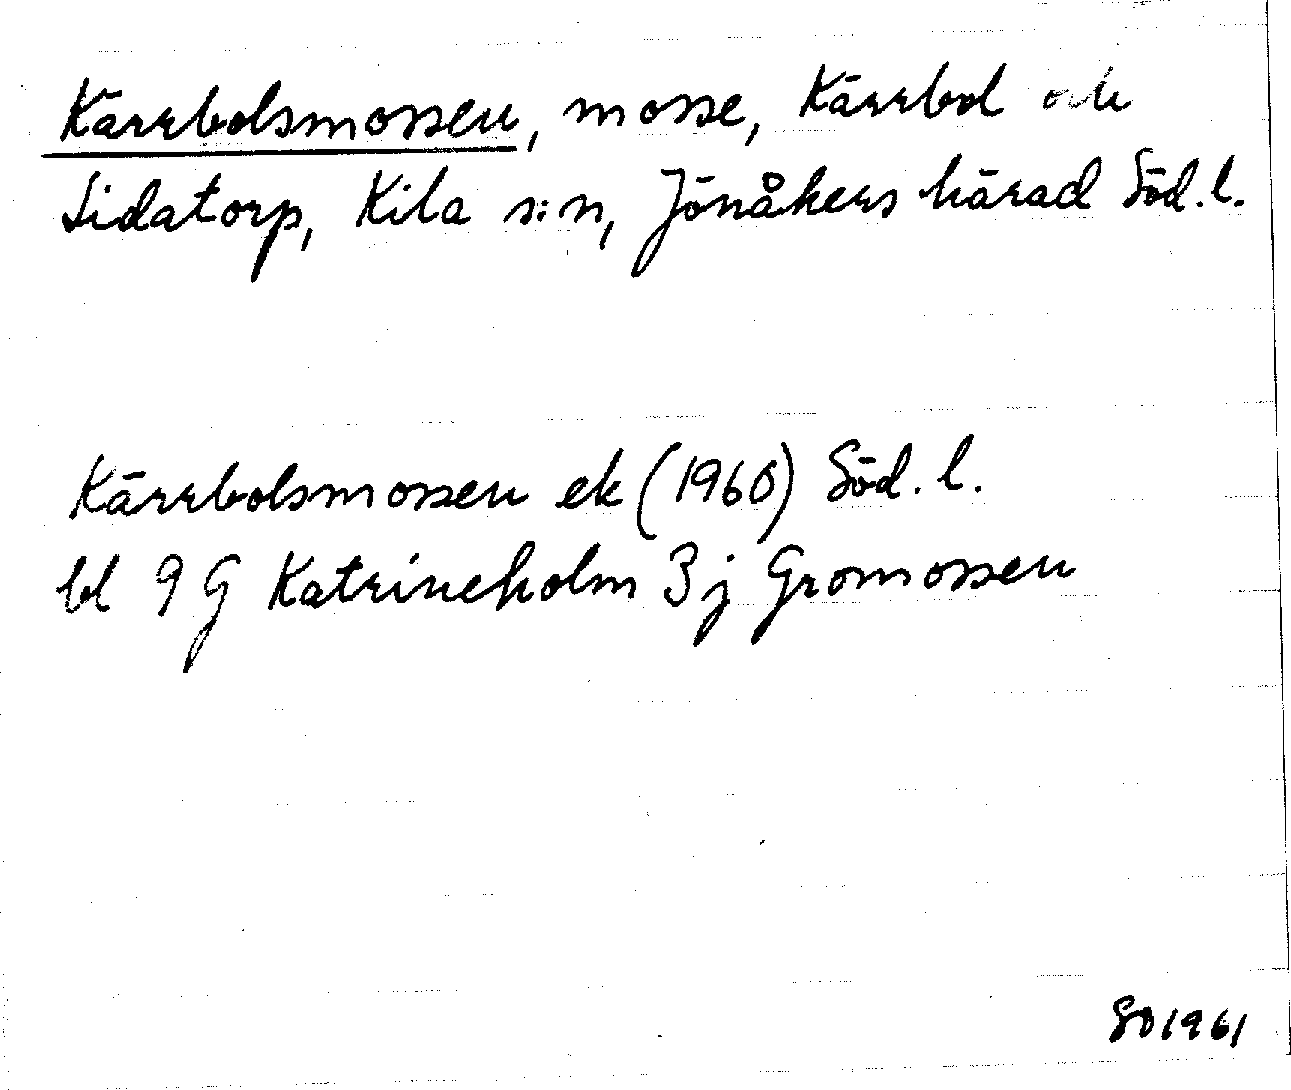 Kärrbolsmossen, mosse, Kärrbol och
Sidatorp, Kila s:n, Jönåkers härad Söd. l.
Kärrbolsmossen ek (1960) Söd. l.
bl 9 G Katrineholm 3 j Gromossen
SO 1961